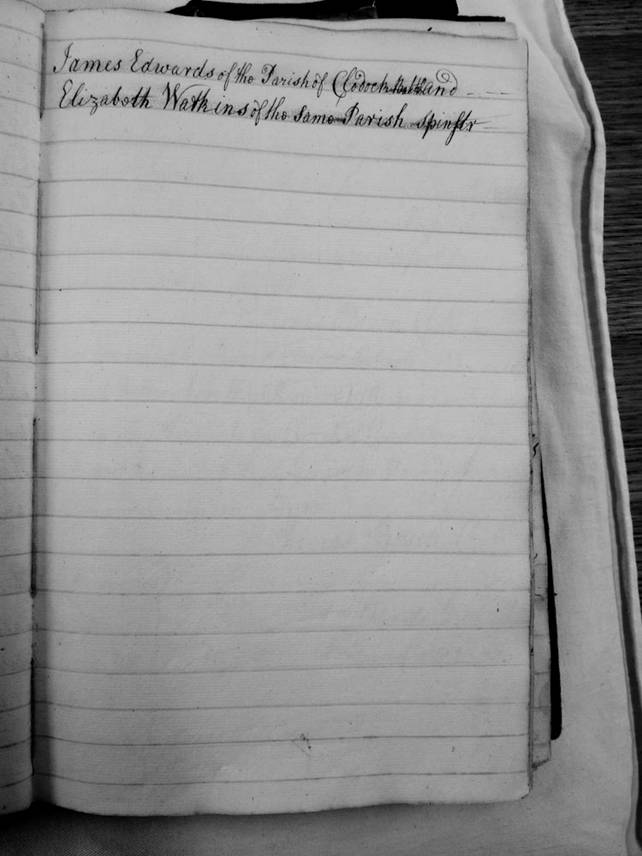 James Edwards of the Parish of Clodock and
Elizabeth Watkins of the same Parish Spinstr